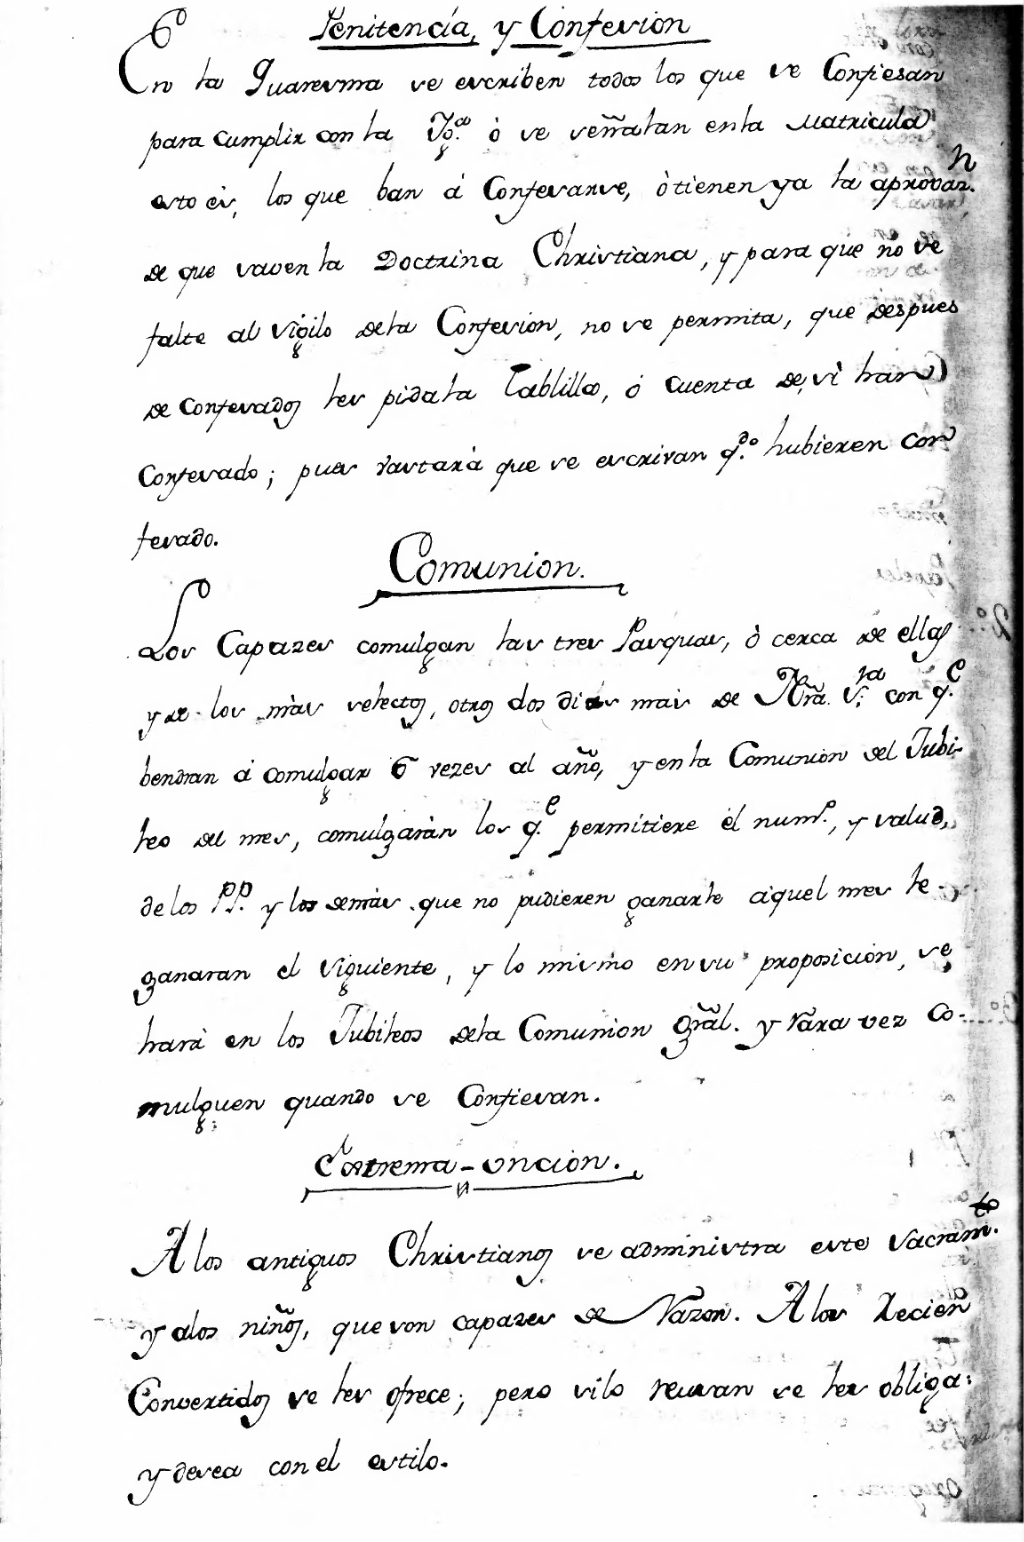 6
Penitencia, y Confesion
En la Quaresma se escriben todos los que se Confiesan
para cumplir con la Ygª. ò se señalan en la Matricula
esto es, los que ban á Confesarse, ò tienen ya la aprovan.
de que saven la Doctrina Christiana, y para que no se
falte al sigilo de la Confesion, no se permita, que despues
de confesados les pida la Tablilla, ó cuenta de, si han
Confesado; pues vastarà que se escrivan qdo. hubieren con
fesado.
Comunion.
Los Capazes comulgan las tres Pasquas, ò cerca de ellas
y de los màs selectos, otros dos dias mas de Nrã. Sra. con qe.
bendran á comulgar 6 vezes al año, y en la Comunion del Jubi-
leo del mes, comulgaràn los qe. permitiere el numo., y salud,
de los PP. y los demàs que no pudieren ganarle aquel mes le
ganaran el siguiente, y lo mismo en su proposicion, se
harà en los Jubileos de la Comunion Grãl. y rara vez co-
mulguen quando se Confiesan.
Extrema-Uncion.
A los antiguos Christianos se administra este Sacramto.
y alos niños, que son capazes de Razon. A los recien
Convertidos se les ofrece; pero si lo reusan se les obliga:
y desea con el estilo.